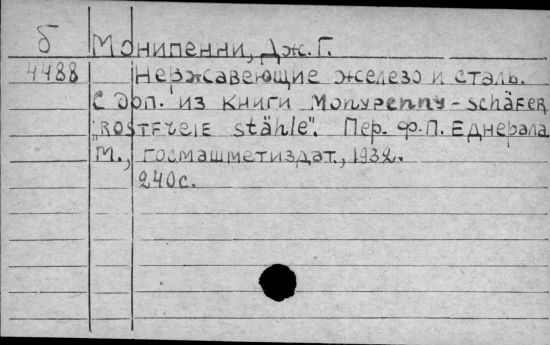 б
Монипенни, Дж. Г.
4488 Нержавеющие железо и сталь.
С доп. из книги Monypenny-schäfer
"Rostfreie stähle". Пер. Ф.П. Еднерала
М., Госмашметиздат., 1932.
240с.